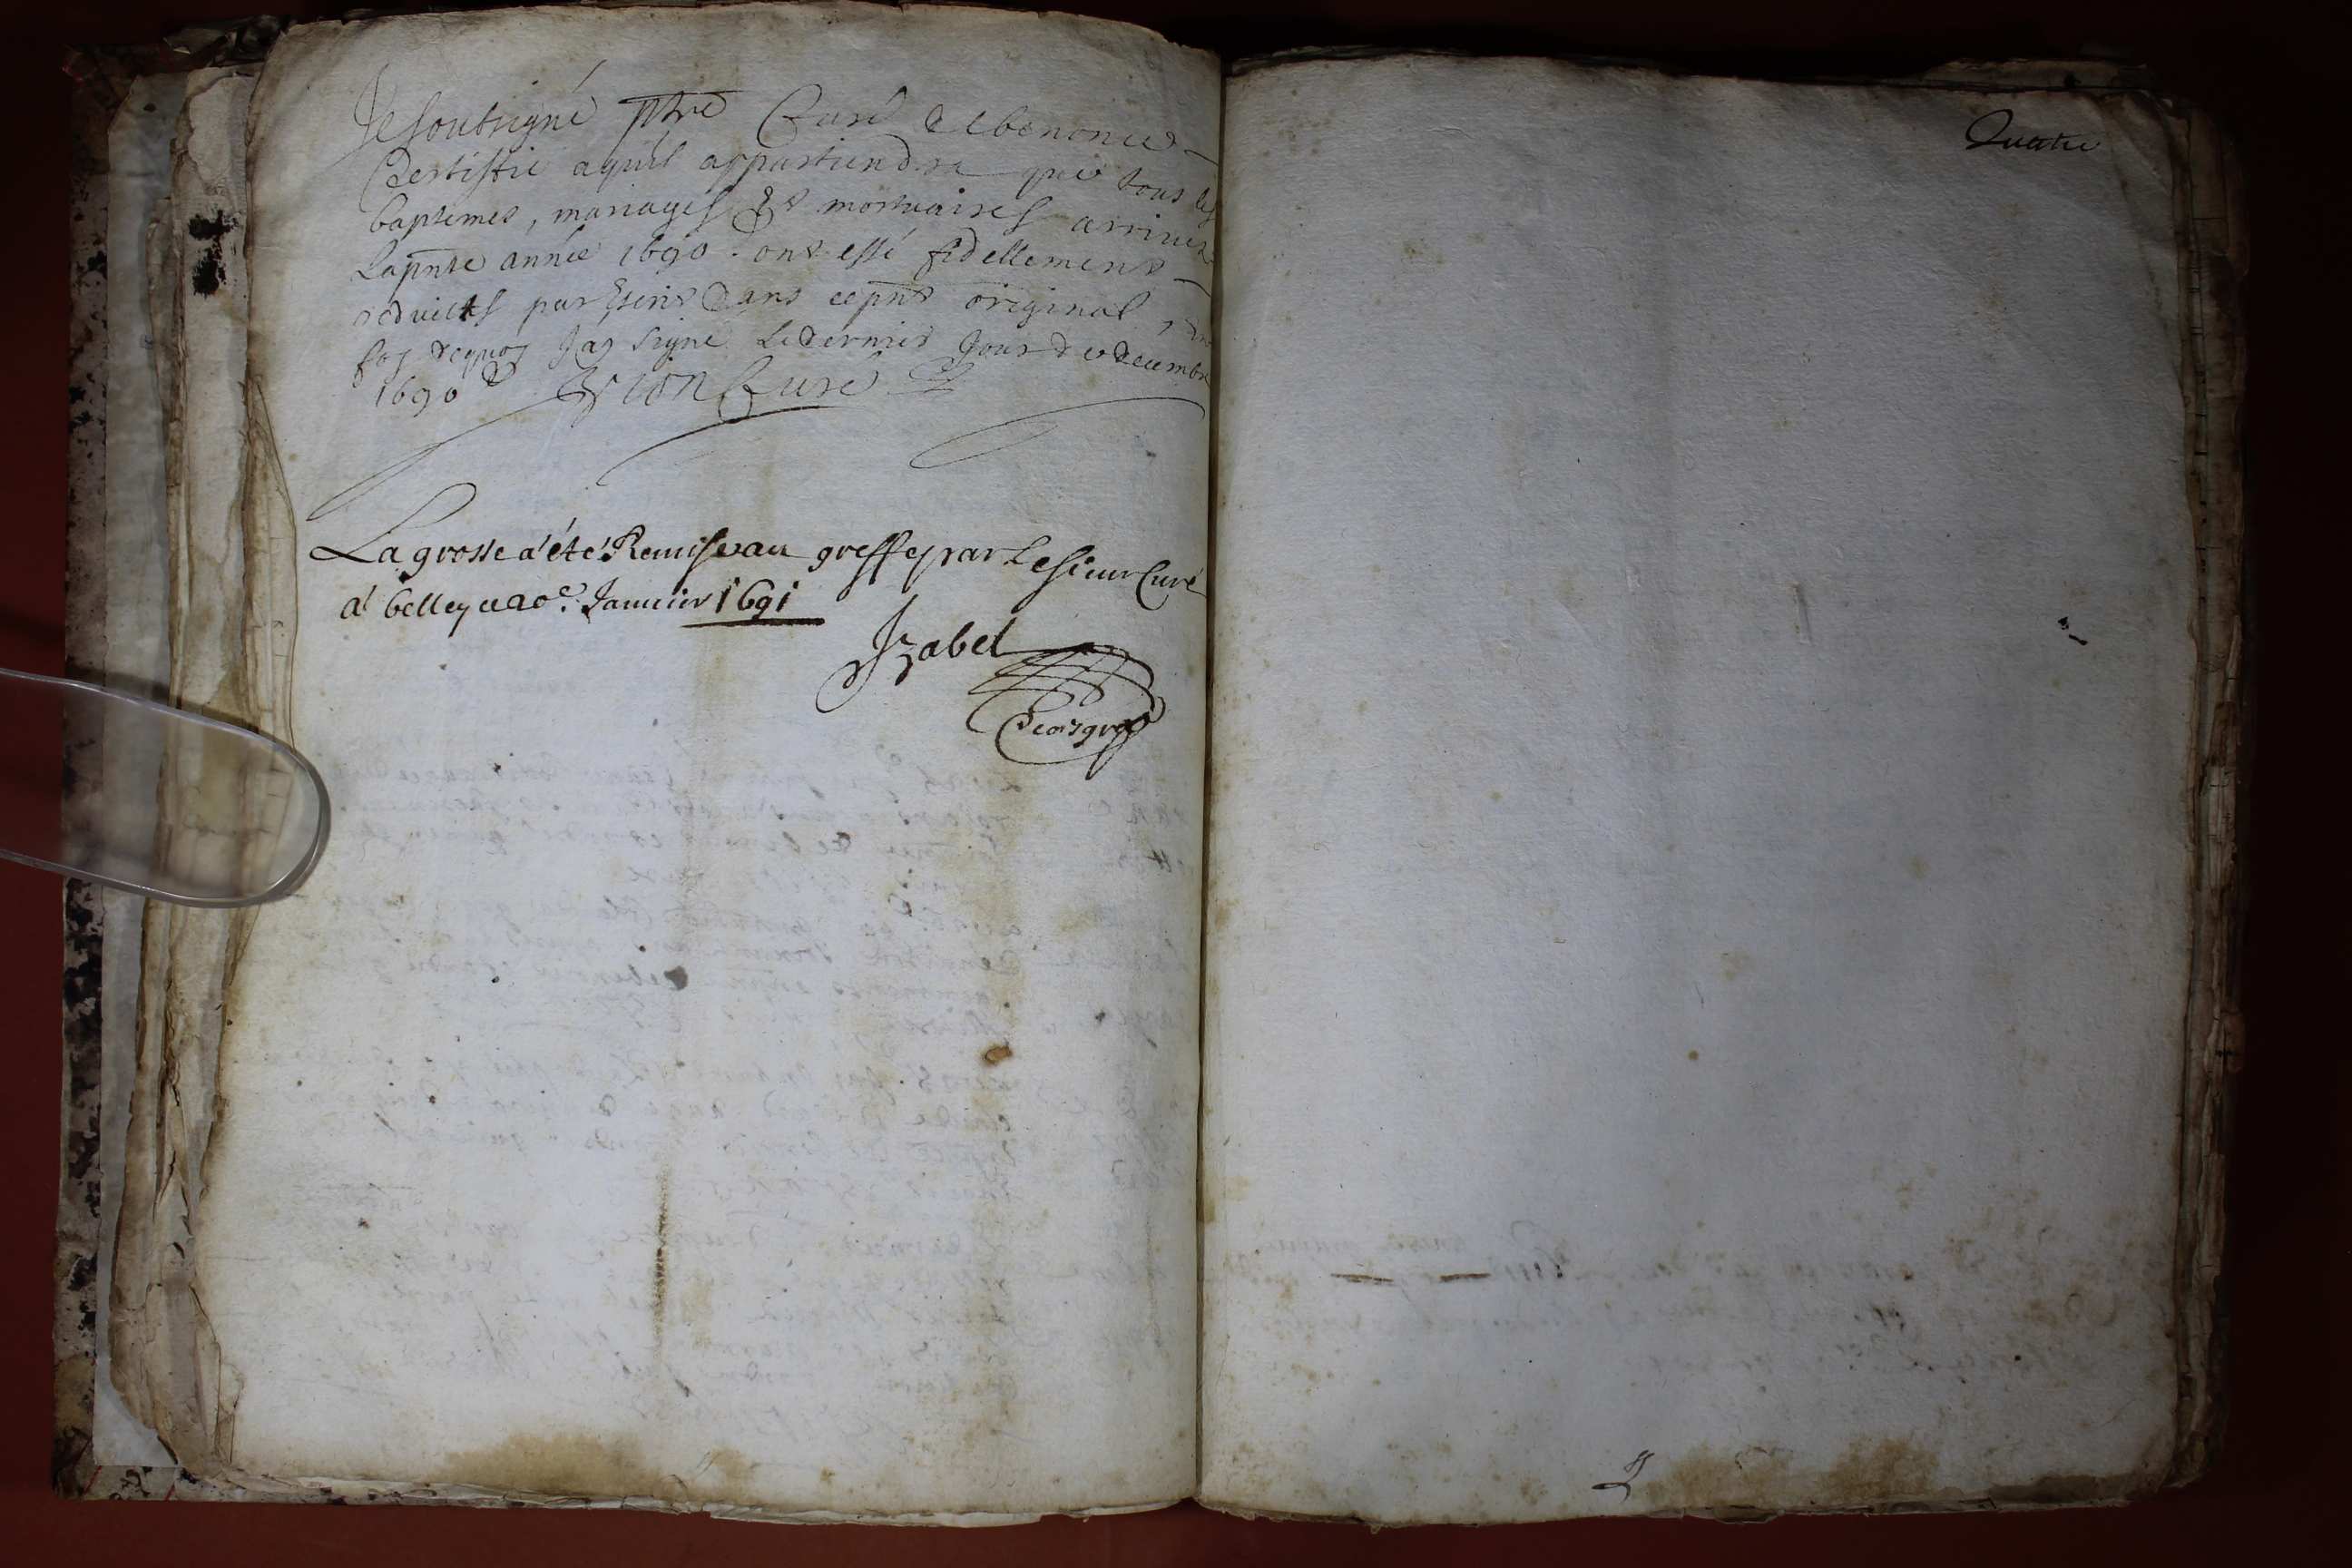 Je soubsigné ptre Curé de benonce
Certiffie a qu'il appartiendra que tous les
baptemes, mariages et mortuaires arrives
La pnte année 1690. ont esté fidellement
reduicts par Escrit dans ce pnt original, en
foy dequoy Jay signé Le dernier Jour de decembre
1690 Curé
La grosse a été Remise au greffe par Le sieur Curé
a belley ce 20e. Januier 1691
Jzabel
Quatre